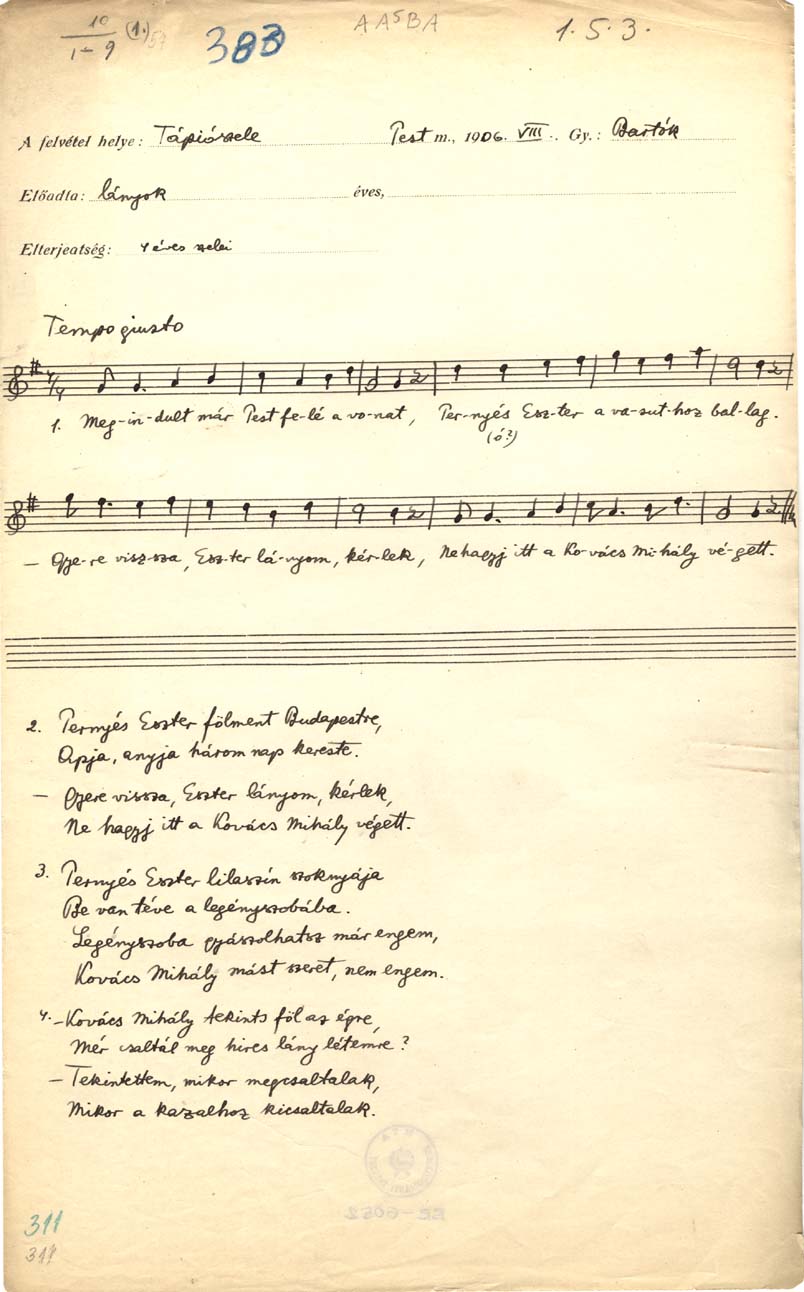 10
1-9
(1.)
383
A A⁵ B A
1. 5. 3.
A felvétel helye: Tápiószele Pest m., 1906. VIII. Gy.: Bartók
Előadta: lányok éves,
Elterjeatség: 4 éves szelei
Tempo giusto
4/4
1. Meg-in-dult már Pest fe-lé a vo-nat, Per-nyés Esz-ter a va-sut-hoz bal-lag.
(ó?)
— Gye-re visz-sza, Esz-ter lá-nyom, kér-lek, Ne hagyj itt a Ko-vács Mi-hály vé-gett.
2. Pernyés Eszter fölment Budapestre,
Apja, anyja három nap kereste.
— Gyere vissza, Eszter lányom, kérlek,
Ne hagyj itt a Kovács Mihály végett.
3. Pernyés Eszter lilaszín szoknyája
Be van téve a legényszobába.
Legényszoba gyászolhatsz már engem,
Kovács Mihály mást szeret, nem engem.
4. — Kovács Mihály tekints föl az égre,
Mér csaltál meg hires lány létemre?
— Tekintettem, mikor megcsaltalak,
Mikor a kazalhoz kicsaltalak.
311
311